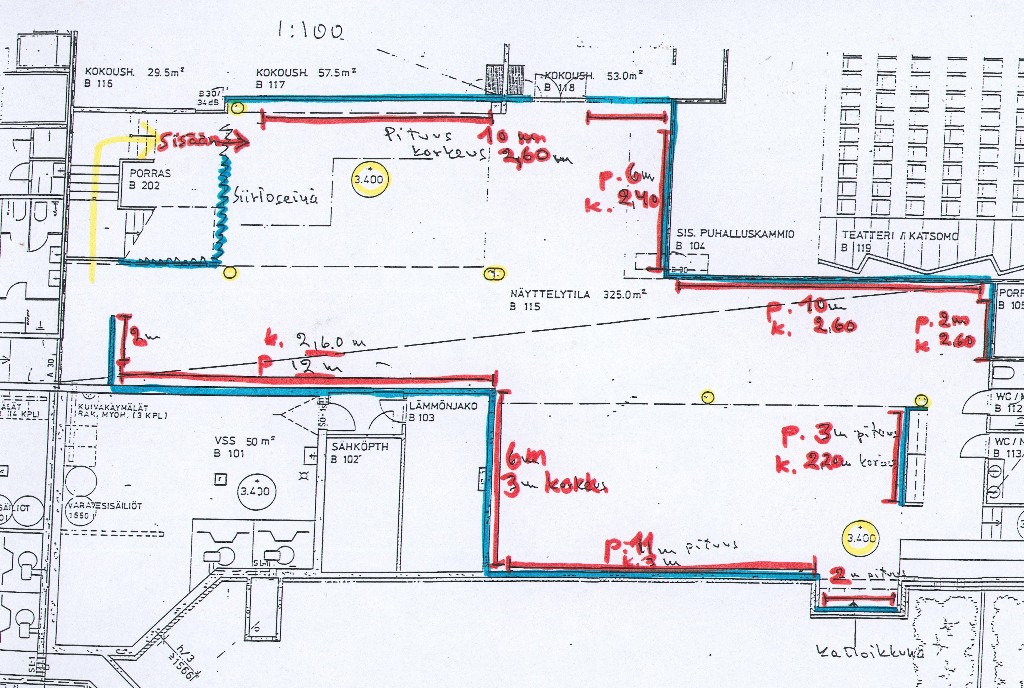 1:100
KOKOUSH. 29.5m²
B 116
KOKOUSH. 57.5m²
B 117
KOKOUSH. 53.0m²
B 118
B 30/
34dB
Sisään
Pituus 10 m
korkeus 2,60 m
PORRAS
B 202
Siirtoseinä
3.400
p. 6m
k. 2,40
SIS. PUHALLUSKAMMIO
B 104
TEATTERI / KATSOMO
B 119
NÄYTTELYTILA 325.0m²
B 115
p. 10m
k. 2,60
p. 2m
k 2,60
B 105
2m
k. 2,60 m
p 12 m
A 30
KUIVAKÄYMÄLÄT
RAK. MYÖH. (3 KPL)
(4 KPL)
LÄMMÖNJAKO
B 103
VSS 50 m²
B 101
SÄHKÖPTH
B 102
3.400
VARAVESISÄILIÖT
6m
3m korkeus
p. 3m pituus
k. 220m korkeus
WC /
B 112
WC /
B 113
3.400
p. 11m pituus
k. 3 m
2m pituus
Kattoikkuna